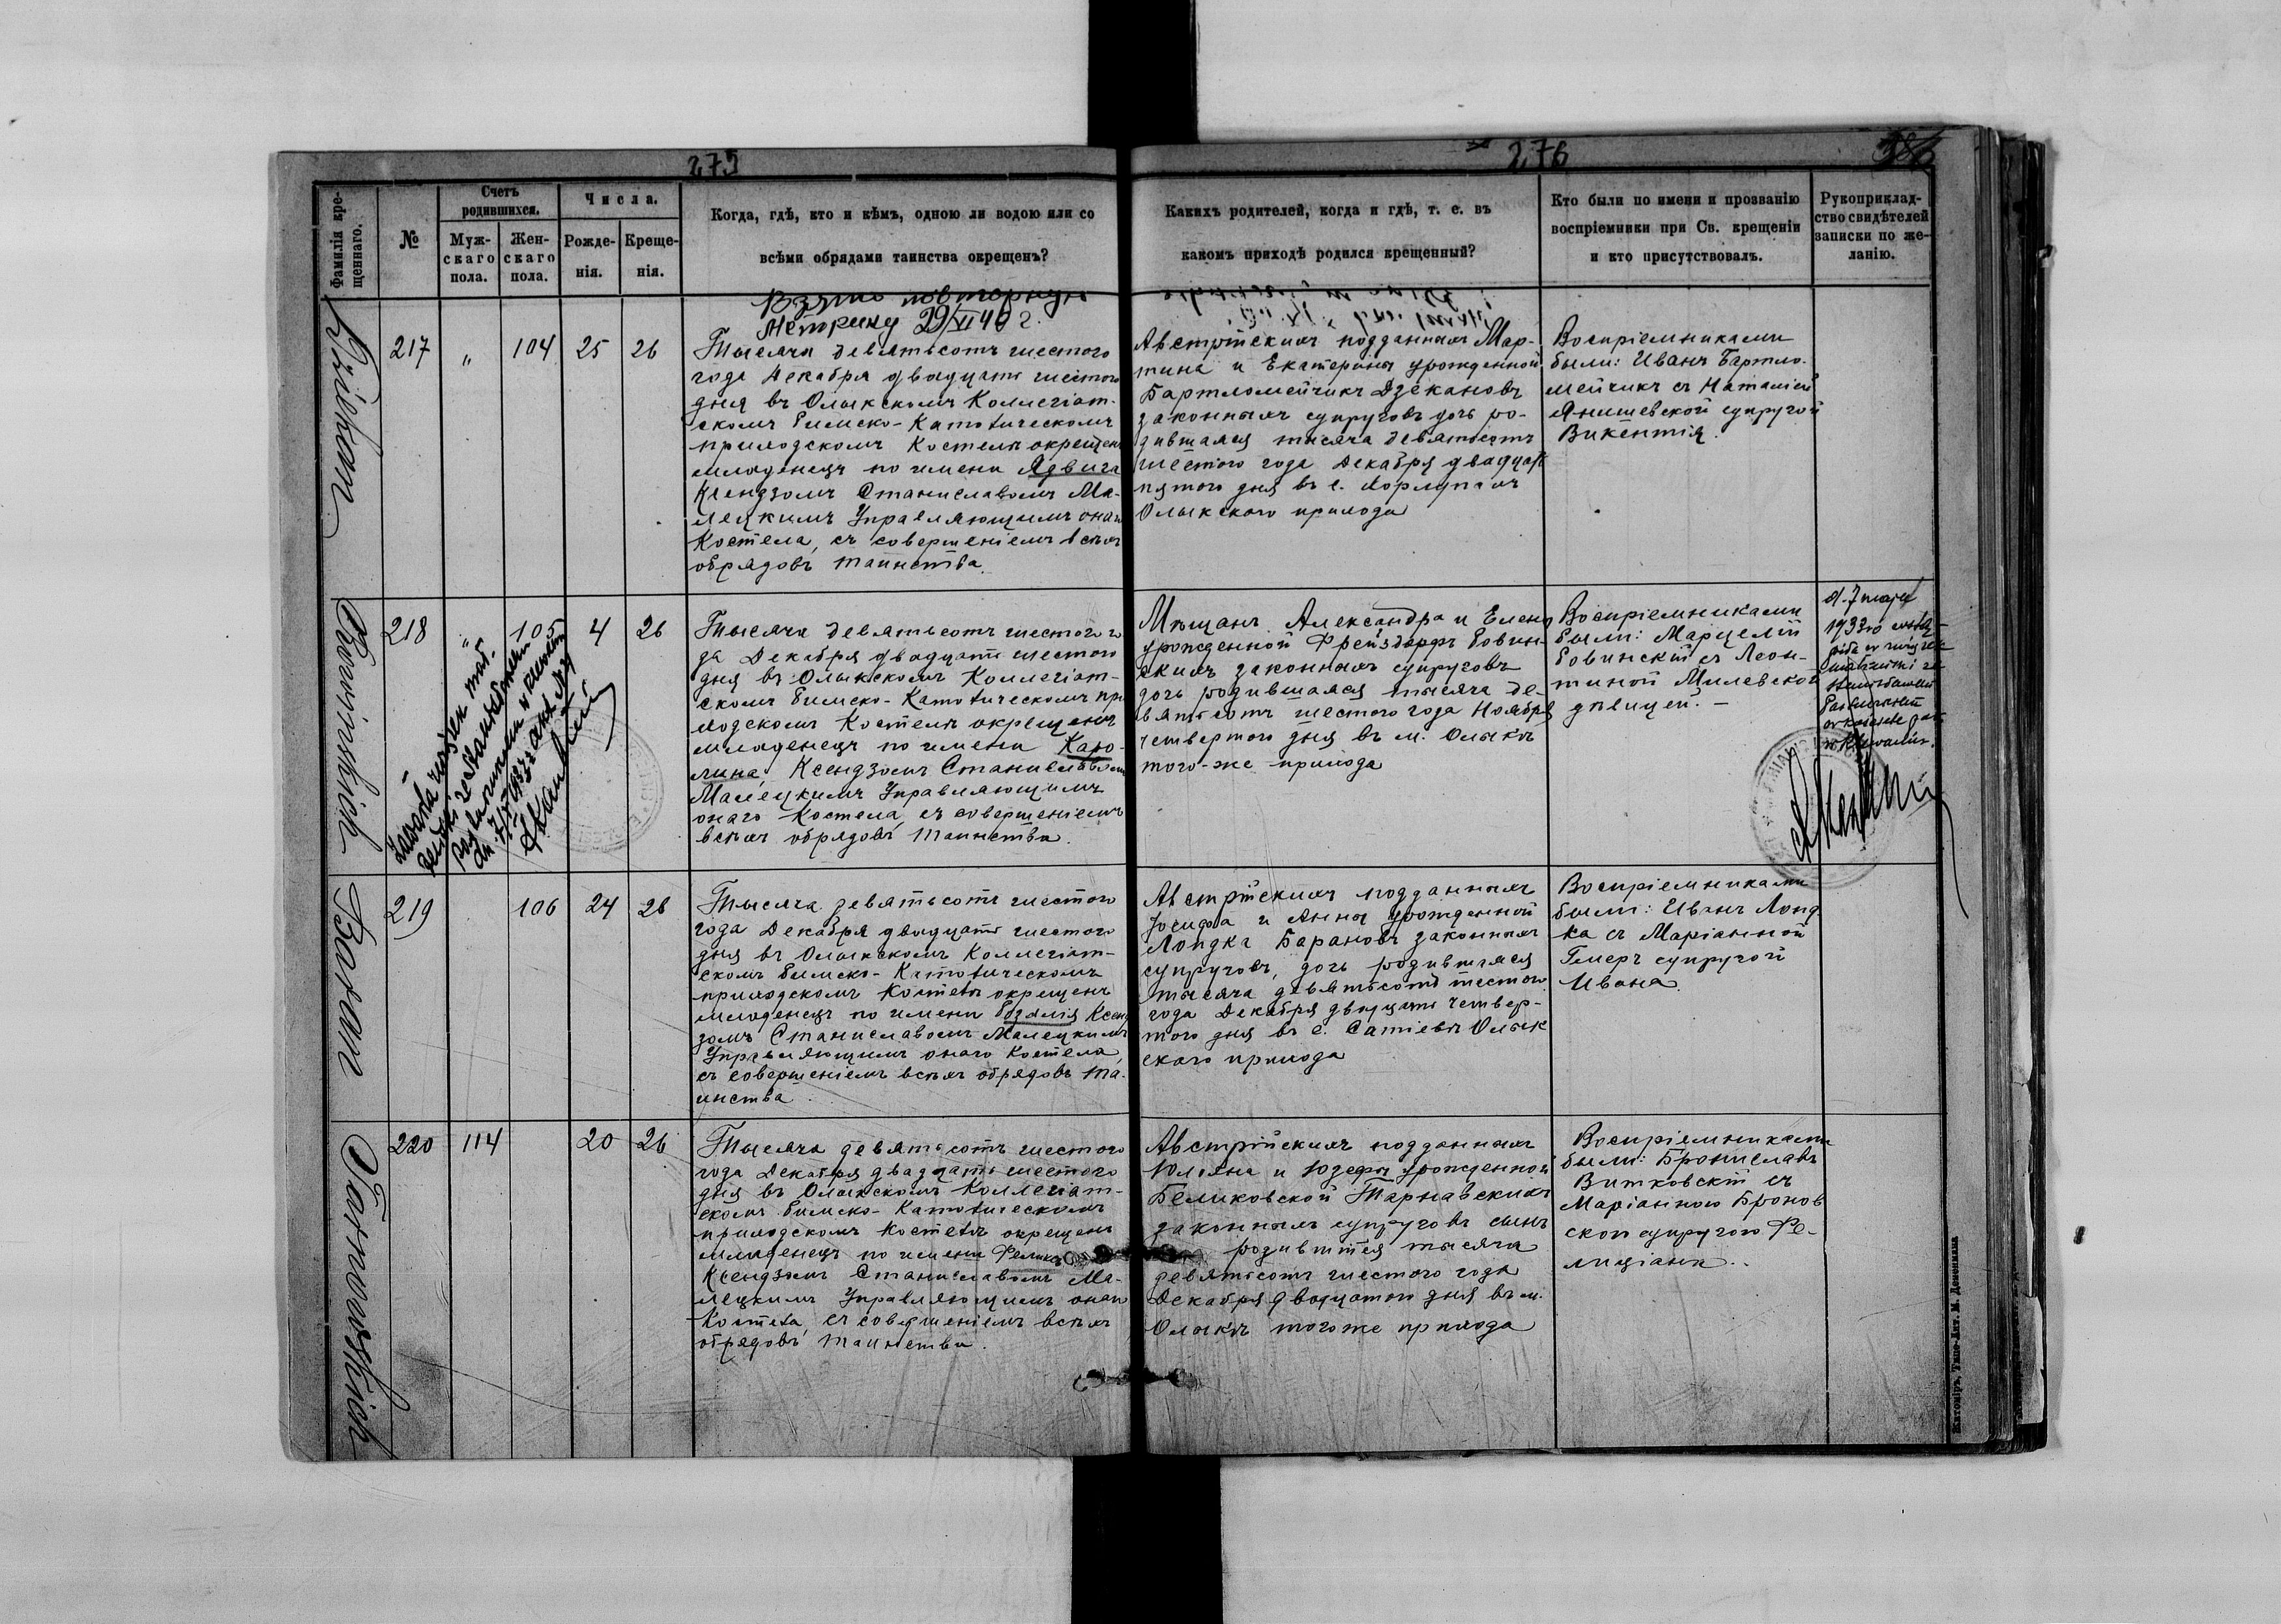 275
276
Фамилія кре-
щеннаго.
№
Счетъ
родившихся.
Муж-
скаго
пола.
Жен-
скаго
пола.
Числа.
Рожде-
нія.
Креще-
нія.
Когда, гдѣ, кто и кѣмъ, одною ли водою или со
всѣми обрядами таинства окрещенъ?
Какихъ родителей, когда и гдѣ, т. е. въ
какомъ приходѣ родился крещенный?
Кто были по имени и прозванію
воспріемники при Св. крещеніи
и кто присутствовалъ.
Рукоприклад-
ство свидѣтелей
записки по же-
ланію.
Взято повторную
Метрику 29/XI 40 г.
Dziekan
217
"
104
25
26
Тысяча девятьсотъ шестого
года Декабря двадцать шестого
дня въ Олыкскомъ Коллегіат-
скомъ Римско-Католическомъ
приходскомъ Костелѣ окрещенъ
младенецъ по имени Ядвига
Ксендзомъ Станиславомъ Ма-
лецкимъ Управляющимъ онаго
Костела, съ совершеніемъ всѣхъ
обрядовъ таинства.
Австрійскихъ подданныхъ Мар-
тина и Екатерины урожденной
Бартломейчикъ Дзекановъ
законныхъ супруговъ дочь ро-
дившаяся тысяча девятьсотъ
шестого года Декабря двадцать
пятого дня въ с. Хорлупахъ
Олыкского прихода
Воспріемниками
были: Иванъ Бартло-
мейчикъ съ Наталіей
Янишевской супругой
Викентія.
Rowiński
218
"
105
4
26
Тысяча девятьсотъ шестого го
да Декабря двадцать шестого
дня въ Олыкскомъ Коллегіат-
скомъ Римско-Католическомъ при
ходскомъ Костелѣ окрещенъ
младенецъ по имени Каро-
лина, Ксендзомъ Станиславомъ
Малецкимъ Управляющимъ
онаго Костела, съ совершеніемъ
всѣхъ обрядовъ таинства.
Мѣщанъ Александра и Елены
урожденной Фрейздорфъ Ровин-
скихъ законныхъ супруговъ
дочь родившаяся тысяча де-
вятьсотъ шестого года Ноября
четвертого дня въ м. Олыкѣ
того-же прихода
Воспріемниками
были: Марцелій
Ровинскій съ Леон-
тиной Милевской
дѣвицей. -
d. 7 maja
1933 r.
Baran
219
106
24
26
Тысяча девятьсотъ шестого
года Декабря двадцать шестого
дня въ Олыкскомъ Коллегіат-
скомъ Римско-Католическомъ
приходскомъ Костелѣ окрещенъ
младенецъ по имени Розалія Ксен
дзомъ Станиславомъ Малецкимъ
Управляющимъ онаго Костела,
съ совершеніемъ всѣхъ обрядовъ та-
инства
Австрійскихъ подданныхъ
Іосифа и Анны урожденной
Лопдка Барановъ законныхъ
супруговъ, дочь родившаяся
тысяча девятьсотъ шестого
года Декабря двадцать четвер-
того дня въ с. Сатіевѣ Олык
ского прихода
Воспріемниками
были: Иванъ Лопд
ка съ Маріанной
Гмеръ супругой
Ивана.
Tarnawski
220
114
20
26
Тысяча девятьсотъ шестого
года Декабря двадцать шестого
дня въ Олыкскомъ Коллегіат-
скомъ Римско-Католическомъ
приходскомъ Костелѣ окрещенъ
младенецъ по имени Феликсъ
Ксендзомъ Станиславомъ Ма-
лецкимъ Управляющимъ онаго
Костела, съ совершеніемъ всѣхъ
обрядовъ таинства.
Австрійскихъ подданныхъ
Юліана и Юзефы урожденной
Беликовской Тарнавскихъ
законныхъ супруговъ сынъ
родившійся тысяча
девятьсотъ шестого года
Декабря двадцатого дня въ м.
Олыкѣ тогоже прихода
Воспріемниками
были: Брониславъ
Витковскій съ
Маріанною Бронов
ской супругою Фе-
лиціана.
Житоміръ, Типо-Лит. М. Дененмана